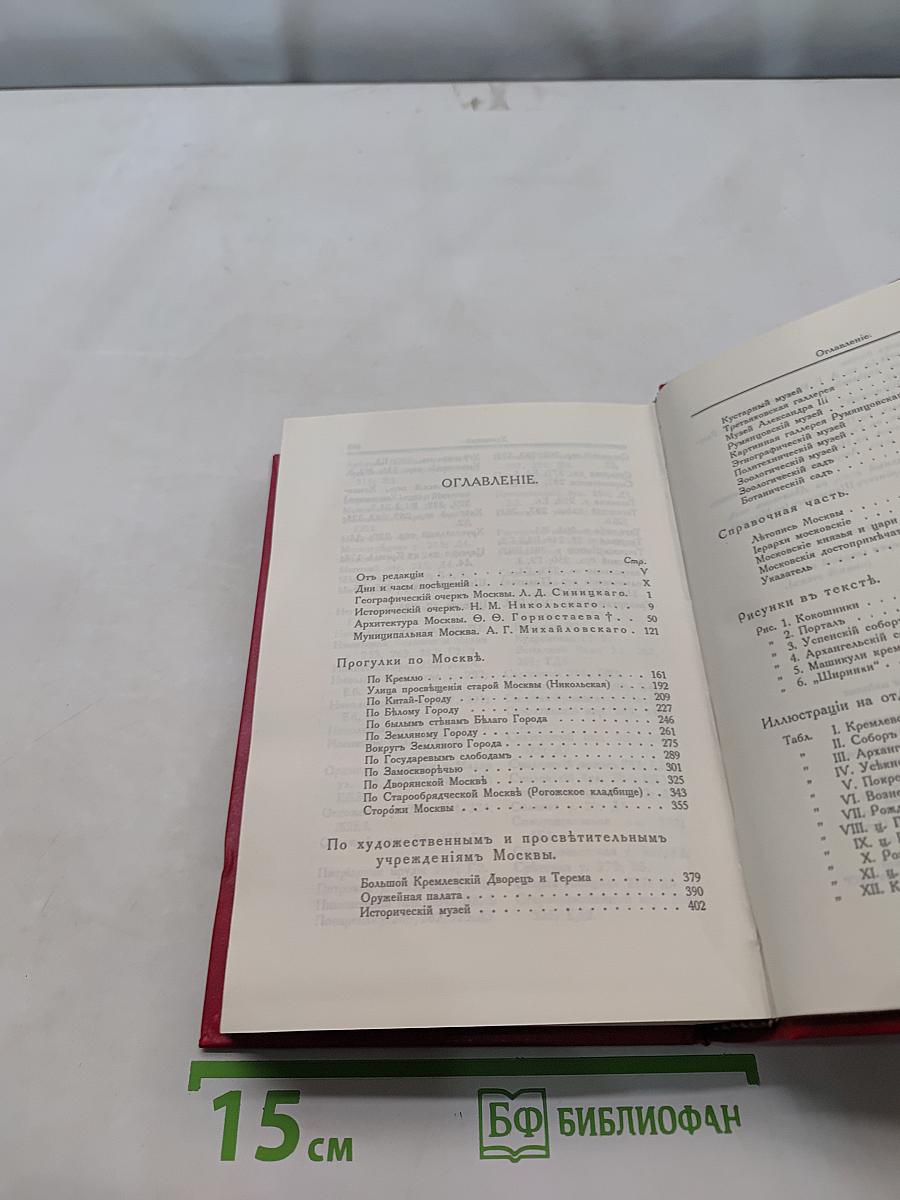 ОГЛАВЛЕНІЕ.
Стр.
Отъ редакціи . . . . . . . . . . . . . . . . . V
Дни и часы посѣщеній . . . . . . . . . . . . . X
Географическій очеркъ Москвы. Л. Д. Синицкаго. 1
Историческій очеркъ. Н. М. Никольскаго . . . 9
Архитектура Москвы. Ѳ. Ѳ. Горностаева †. . 50
Муниципальная Москва. А. Г. Михайловскаго. 121
Прогулки по Москвѣ.
По Кремлю . . . . . . . . . . . . . . . . . 161
Улица просвѣщенія старой Москвы (Никольская) . . . 192
По Китай-Городу . . . . . . . . . . . . . . . 209
По Бѣлому Городу . . . . . . . . . . . . . . 227
По былымъ стѣнамъ Бѣлаго Города . . . . . . . 246
По Земляному Городу . . . . . . . . . . . . . 261
Вокругъ Земляного Города . . . . . . . . . . . 275
По Государевымъ слободамъ . . . . . . . . . . 289
По Замоскворѣчью . . . . . . . . . . . . . . 301
По Дворянской Москвѣ . . . . . . . . . . . . 325
По Старообрядческой Москвѣ (Рогожское кладбище) . . 343
Сторо́жи Москвы . . . . . . . . . . . . . . . 355
По художественнымъ и просвѣтительнымъ
учрежденіямъ Москвы.
Большой Кремлевскій Дворецъ и Терема . . . . . . . 379
Оружейная палата . . . . . . . . . . . . . . . 390
Историческій музей . . . . . . . . . . . . . . 402
Оглавленіе.
Кустарный музей . . .
Третьяковская галлерея
Музей Александра III
Румянцовскій музей
Картинная галлерея Румянцовска
Этнографическій музей
Политехническій музей
Зоологическій музей
Зоологическій садъ
Ботаническій садъ
Справочная часть.
Лѣтопись Москвы
Іерархи московскіе
Московскіе князья и цари
Московскія достопримѣчат
Указатель
Рисунки въ текстѣ.
Рис. 1. Кокошники
" 2. Порталъ
" 3. Успенскій собор
" 4. Архангельскій с
" 5. Машикули крем
" 6. „Ширинки“
Иллюстраціи на от
Табл. I. Кремлевс
" II. Соборъ
" III. Арханг
" IV. Усѣкн
" V. Покро
" VI. Возне
" VII. Рожд
" VIII. ц. Г
" IX. ц.
" X. Ро
" XI. ц.
" XII. К
15 см
БФ БИБЛИОФАН